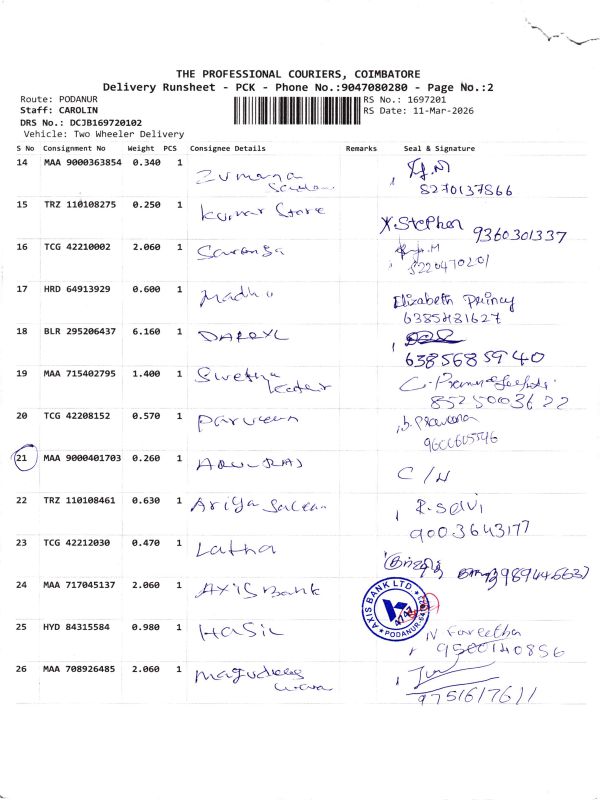 THE PROFESSIONAL COURIERS, COIMBATORE
Delivery Runsheet - PCK - Phone No.:9047080280 - Page No.:2
Route: PODANUR
RS No.: 1697201
Staff: CAROLIN
RS Date: 11-Mar-2026
DRS No.: DCJB169720102
Vehicle: Two Wheeler Delivery
S No Consignment No Weight PCS Consignee Details Remarks Seal & Signature
14 MAA 9000363854 0.340 1
8270137866
15 TRZ 110108275 0.250 1 Kumar Store X.Stephen 9360301337
16 TCG 42210002 2.060 1
8220470201
17 HRD 64913929 0.600 1 Madhu Elizabeth
18 BLR 295206437 6.160 1 DARRYL
6385685940
19 MAA 715402795 1.400 1 Swetha
8525003622
20 TCG 42208152 0.570 1 Parveen
21 MAA 9000401703 0.260 1 ARULRAJ C/H
22 TRZ 110108461 0.630 1 Ariya R. Selvi
9003643177
23 TCG 42212030 0.470 1 Latha
9894446637
24 MAA 717045137 2.060 1 AXIS Bank
AXIS BANK LTD
PODANUR
25 HYD 84315584 0.980 1 Hasil N Fareetha
9500140856
26 MAA 708926485 2.060 1
9751617611